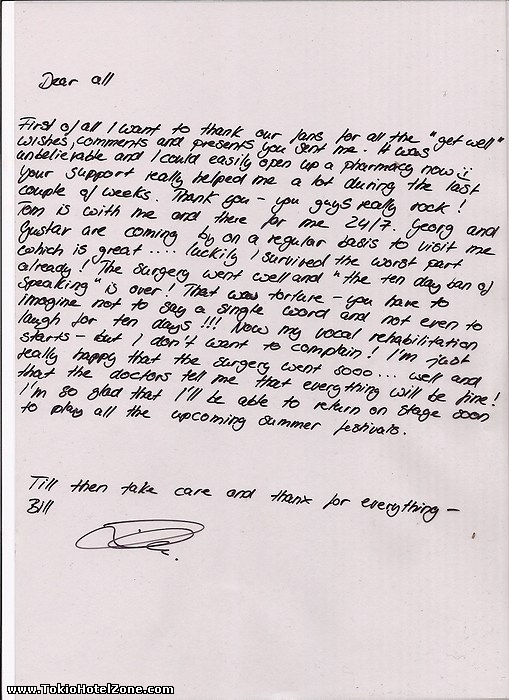 Dear all
First of all I want to thank our fans for all the "get well"
wishes, comments and presents you sent me. It was
unbelievable and I could easily open up a pharmacy now :)
Your support really helped me a lot during the last
couple of weeks. Thank you - you guys really rock!
Tom is with me and there for me 24/7. Georg and
Gustav are coming by on a regular basis to visit me
which is great .... luckily I survived the worst part
already! The surgery went well and "the ten day ban of
speaking" is over! That was torture - you have to
imagine not to say a single word and not even to
laugh for ten days!!! Now my vocal rehabilitation
starts - but I don't want to complain! I'm just
really happy that the surgery went sooo... well and
that the doctors tell me that everything will be fine!
I'm so glad that I'll be able to return on stage soon
to play all the upcoming summer festivals.
Till then take care and thanx for everything -
Bill
www.TokioHotelZone.com